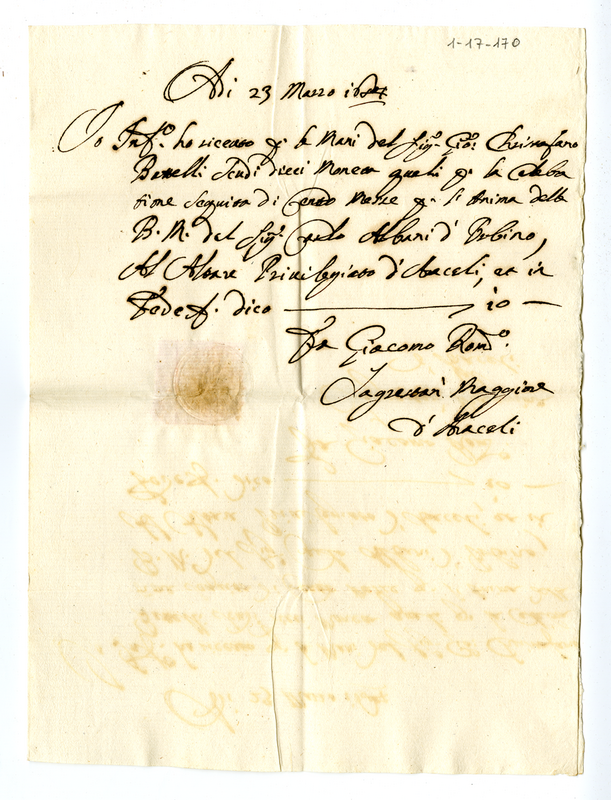 1-17-170
Adi 23 Marzo
Io Inf.º ho riceuto p. le Mani del Sig.r Gio: Chrisostano
Benelli Scudi dieci Moneta quali p. la Celebra
tione Seguita di Cento Messe p. l'Anima della
B. M. del Sig.r Carlo Albani d'Urbino,
Al Altare Privilegiato d'Araceli, et in
Fede f. dico 10
Fr Giacomo Rom.º
Sagrestani Maggiore
d'Araceli